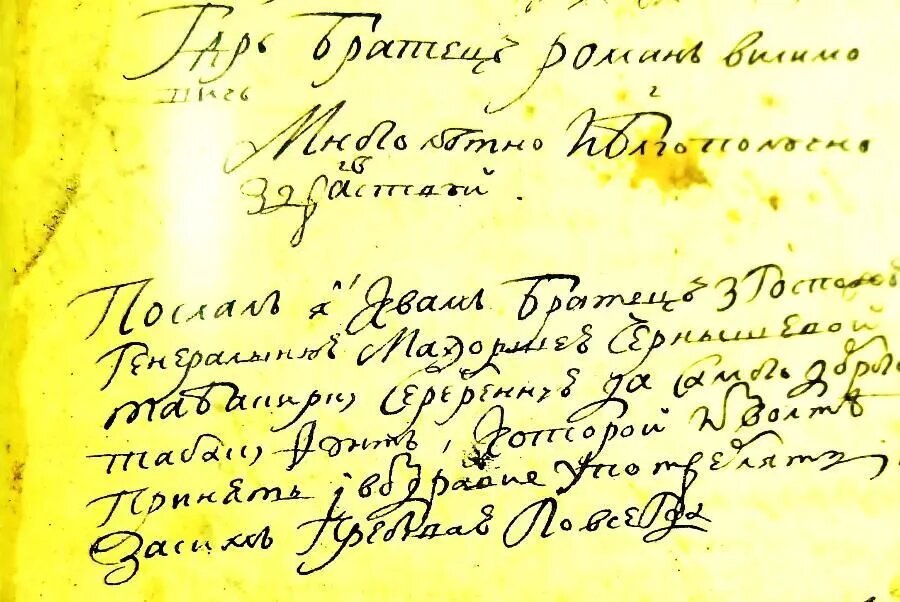 Гдрь братецъ романъ вилимо
вичь
Многолѣтно и блгополучно
здравствуй
Послалъ я къ вамъ братецъ з Госпожею
Генералшею Маэоршею Чернышевой
табакирку серебенную да самого доброго
табаку фунтъ, которой изволте
принять и во здравие употреблять,
Засимъ пребываю повсегда